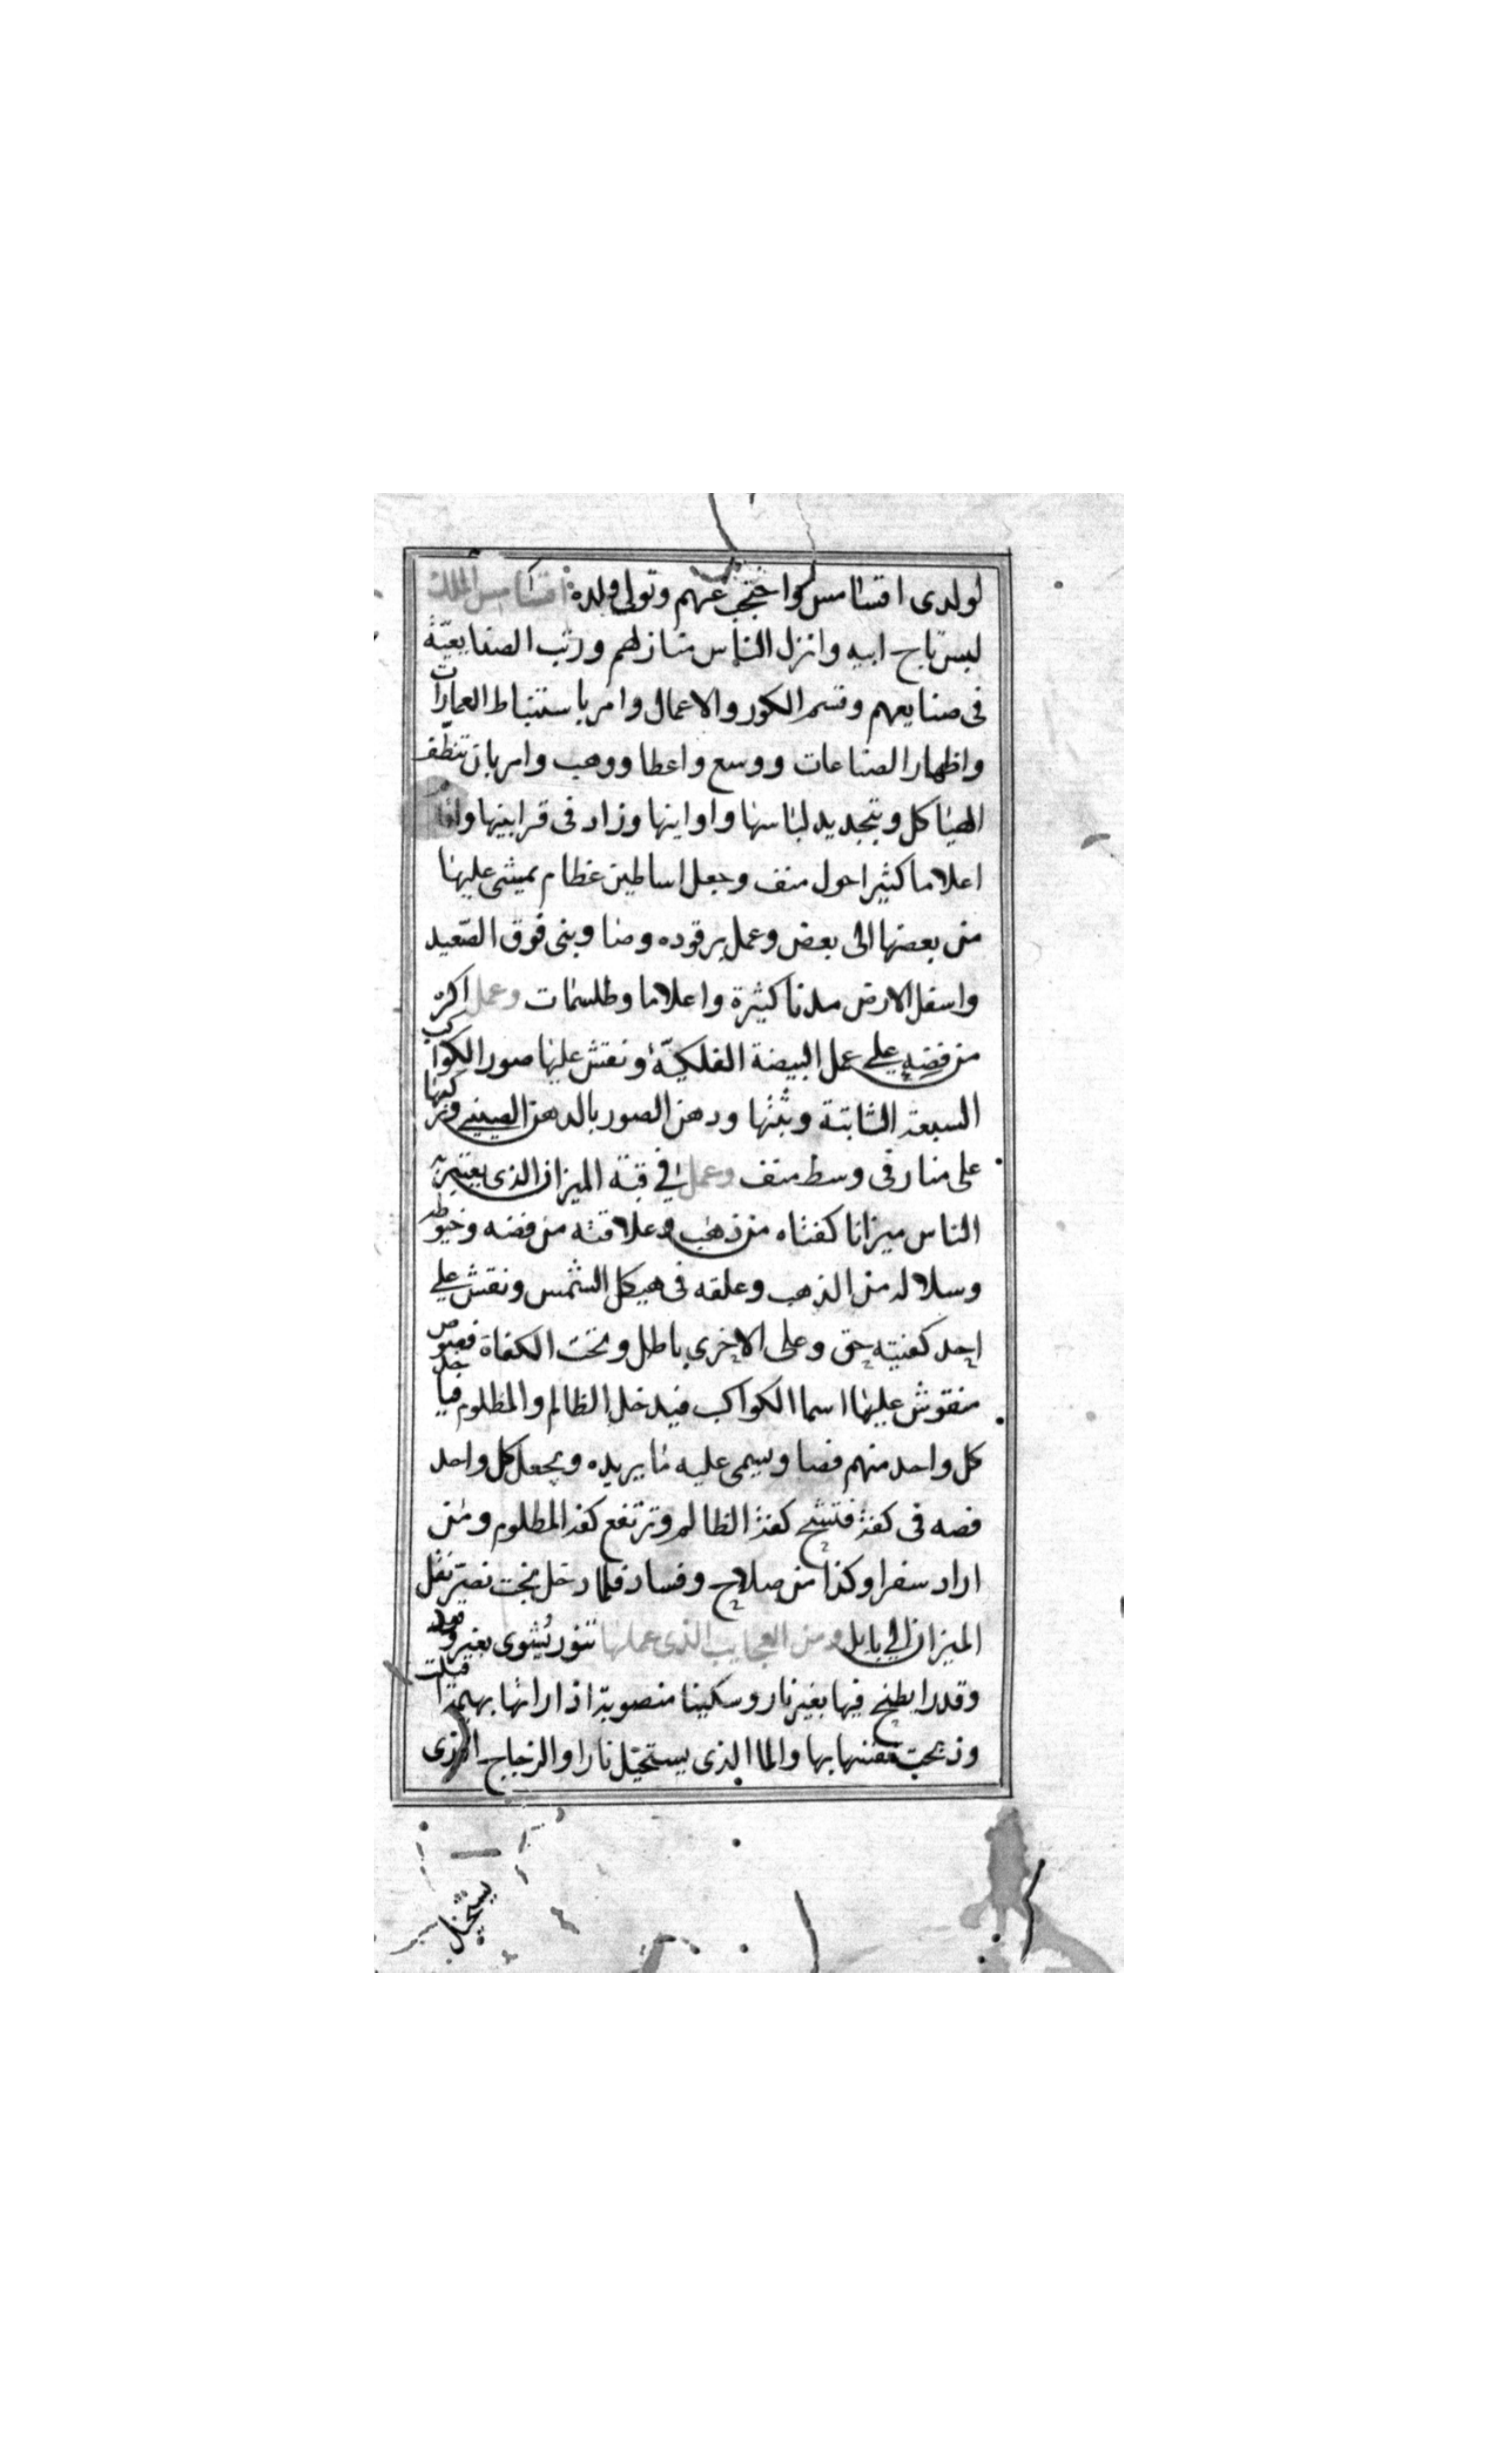 لولدى اقسامس واحتجب عنهم وتولى ولده اقسامس الملك
لبس تاج ابيه وانزل الناس منازلهم ورتب الصنايعية
فى صنايعهم وقسم الكور والاعمال وامر باستنباط العمارات
واظهار الصناعات ووسع واعطا ووهب وامر بان تنظف
الهياكل وبتجديد لباسها واوانيها وزاد فى قرابينها واقام
اعلاما كثيرا حول منف وجعل اساطين عظام يمشى عليها
من بعضها الى بعض وعمل برقوده وصا وبنى فوق الصعيد
واسفل الارض مدنا كثيرة واعلاما وطلسمات وعمل اكرة
من فضه على عمل البيضة الفلكية ونقش عليها صور الكواكب
السبعة الثابتة وبينها ودهن الصور بالدهن الصينى وركبها
على منار فى وسط منف وعمل فى قبة الميزان الذى يعتبر به
الناس ميزانا كفتاه من ذهب وعلاقته من فضه وخيوطه
وسلاله من الذهب وعلقه فى هيكل الشمس ونقش على
احد كفتيه حق وعلى الاخرى باطل وتحت الكفاة فصوص
منقوش عليها اسما الكواكب فيدخل الظالم والمظلوم فياخذ
كل واحد منهم فصا ويسمى عليه ما يريده ويجعل كل واحد
فصه فى كفة فتشح كفة الظالم وترتفع كفة المظلوم ومن
اراد سفرا وكذا من صلاح وفساد فلما دخل بخت نصر نقل
الميزان الى بابل ومن العجايب الذى عملها تنور يشوى بغير وقود
وقدرا يطبخ فيها بغير نار وسكينا منصوبة اذا راتها بهيمة اقبلت
وذبحت نفسها بها والما الذى يستحيل نارا والزجاج الذى
يستحيل